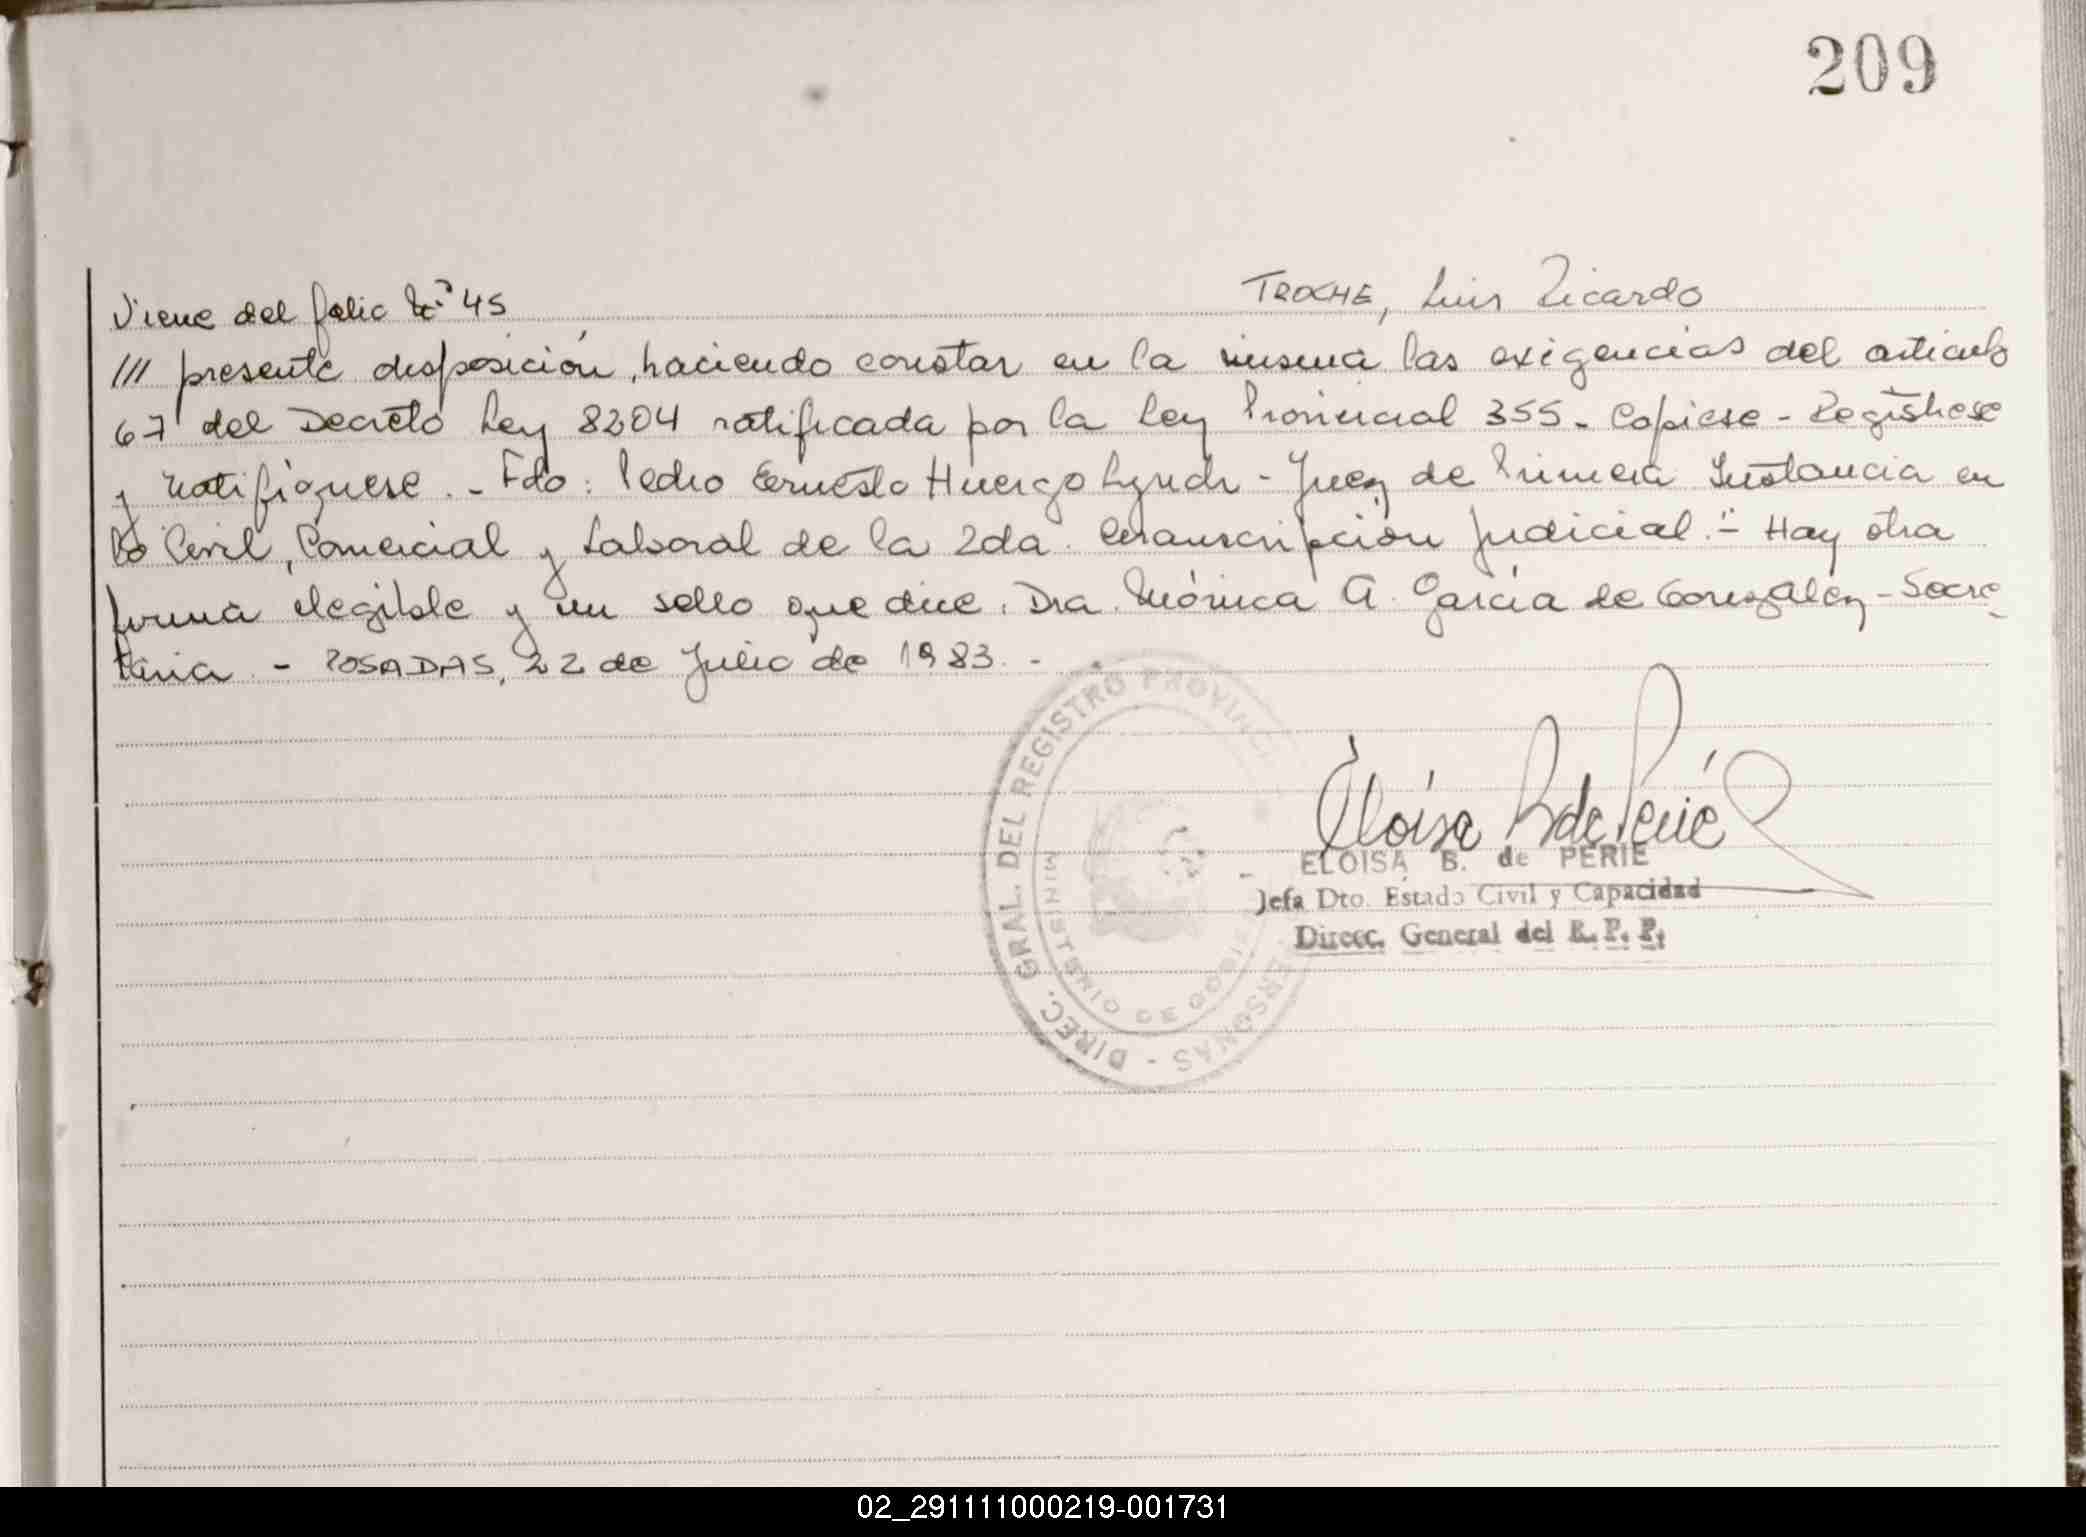 209
Viene del folio Nº 45 TROCHE, Luis Ricardo
/// presente disposición, haciendo constar en la misma las exigencias del articulo
67 del Decreto Ley 8204 ratificada por la Ley Provincial 355.- Copiese - Registrese
y Notifíquese. - Fdo: Pedro Ernesto Huergo Lynch - Juez de Primera Instancia en
lo Civil, Comercial y Laboral de la 2da. Circunscripción Judicial.- Hay otra
firma elegible y un sello que dice. Dra. Mónica A. García de Gonzalez - Secre
taria. - POSADAS, 22 de Julio de 1983. -
DIREC. GRAL. DEL REGISTRO PROVINCI ERSONAS -
MINISTERIO DE GOBIE
Eloísa B de Perié
ELOISA B. de PERIE
Jefa Dto. Estado Civil y Capacidad
Direcc. General del R. P. P.
02_291111000219-001731